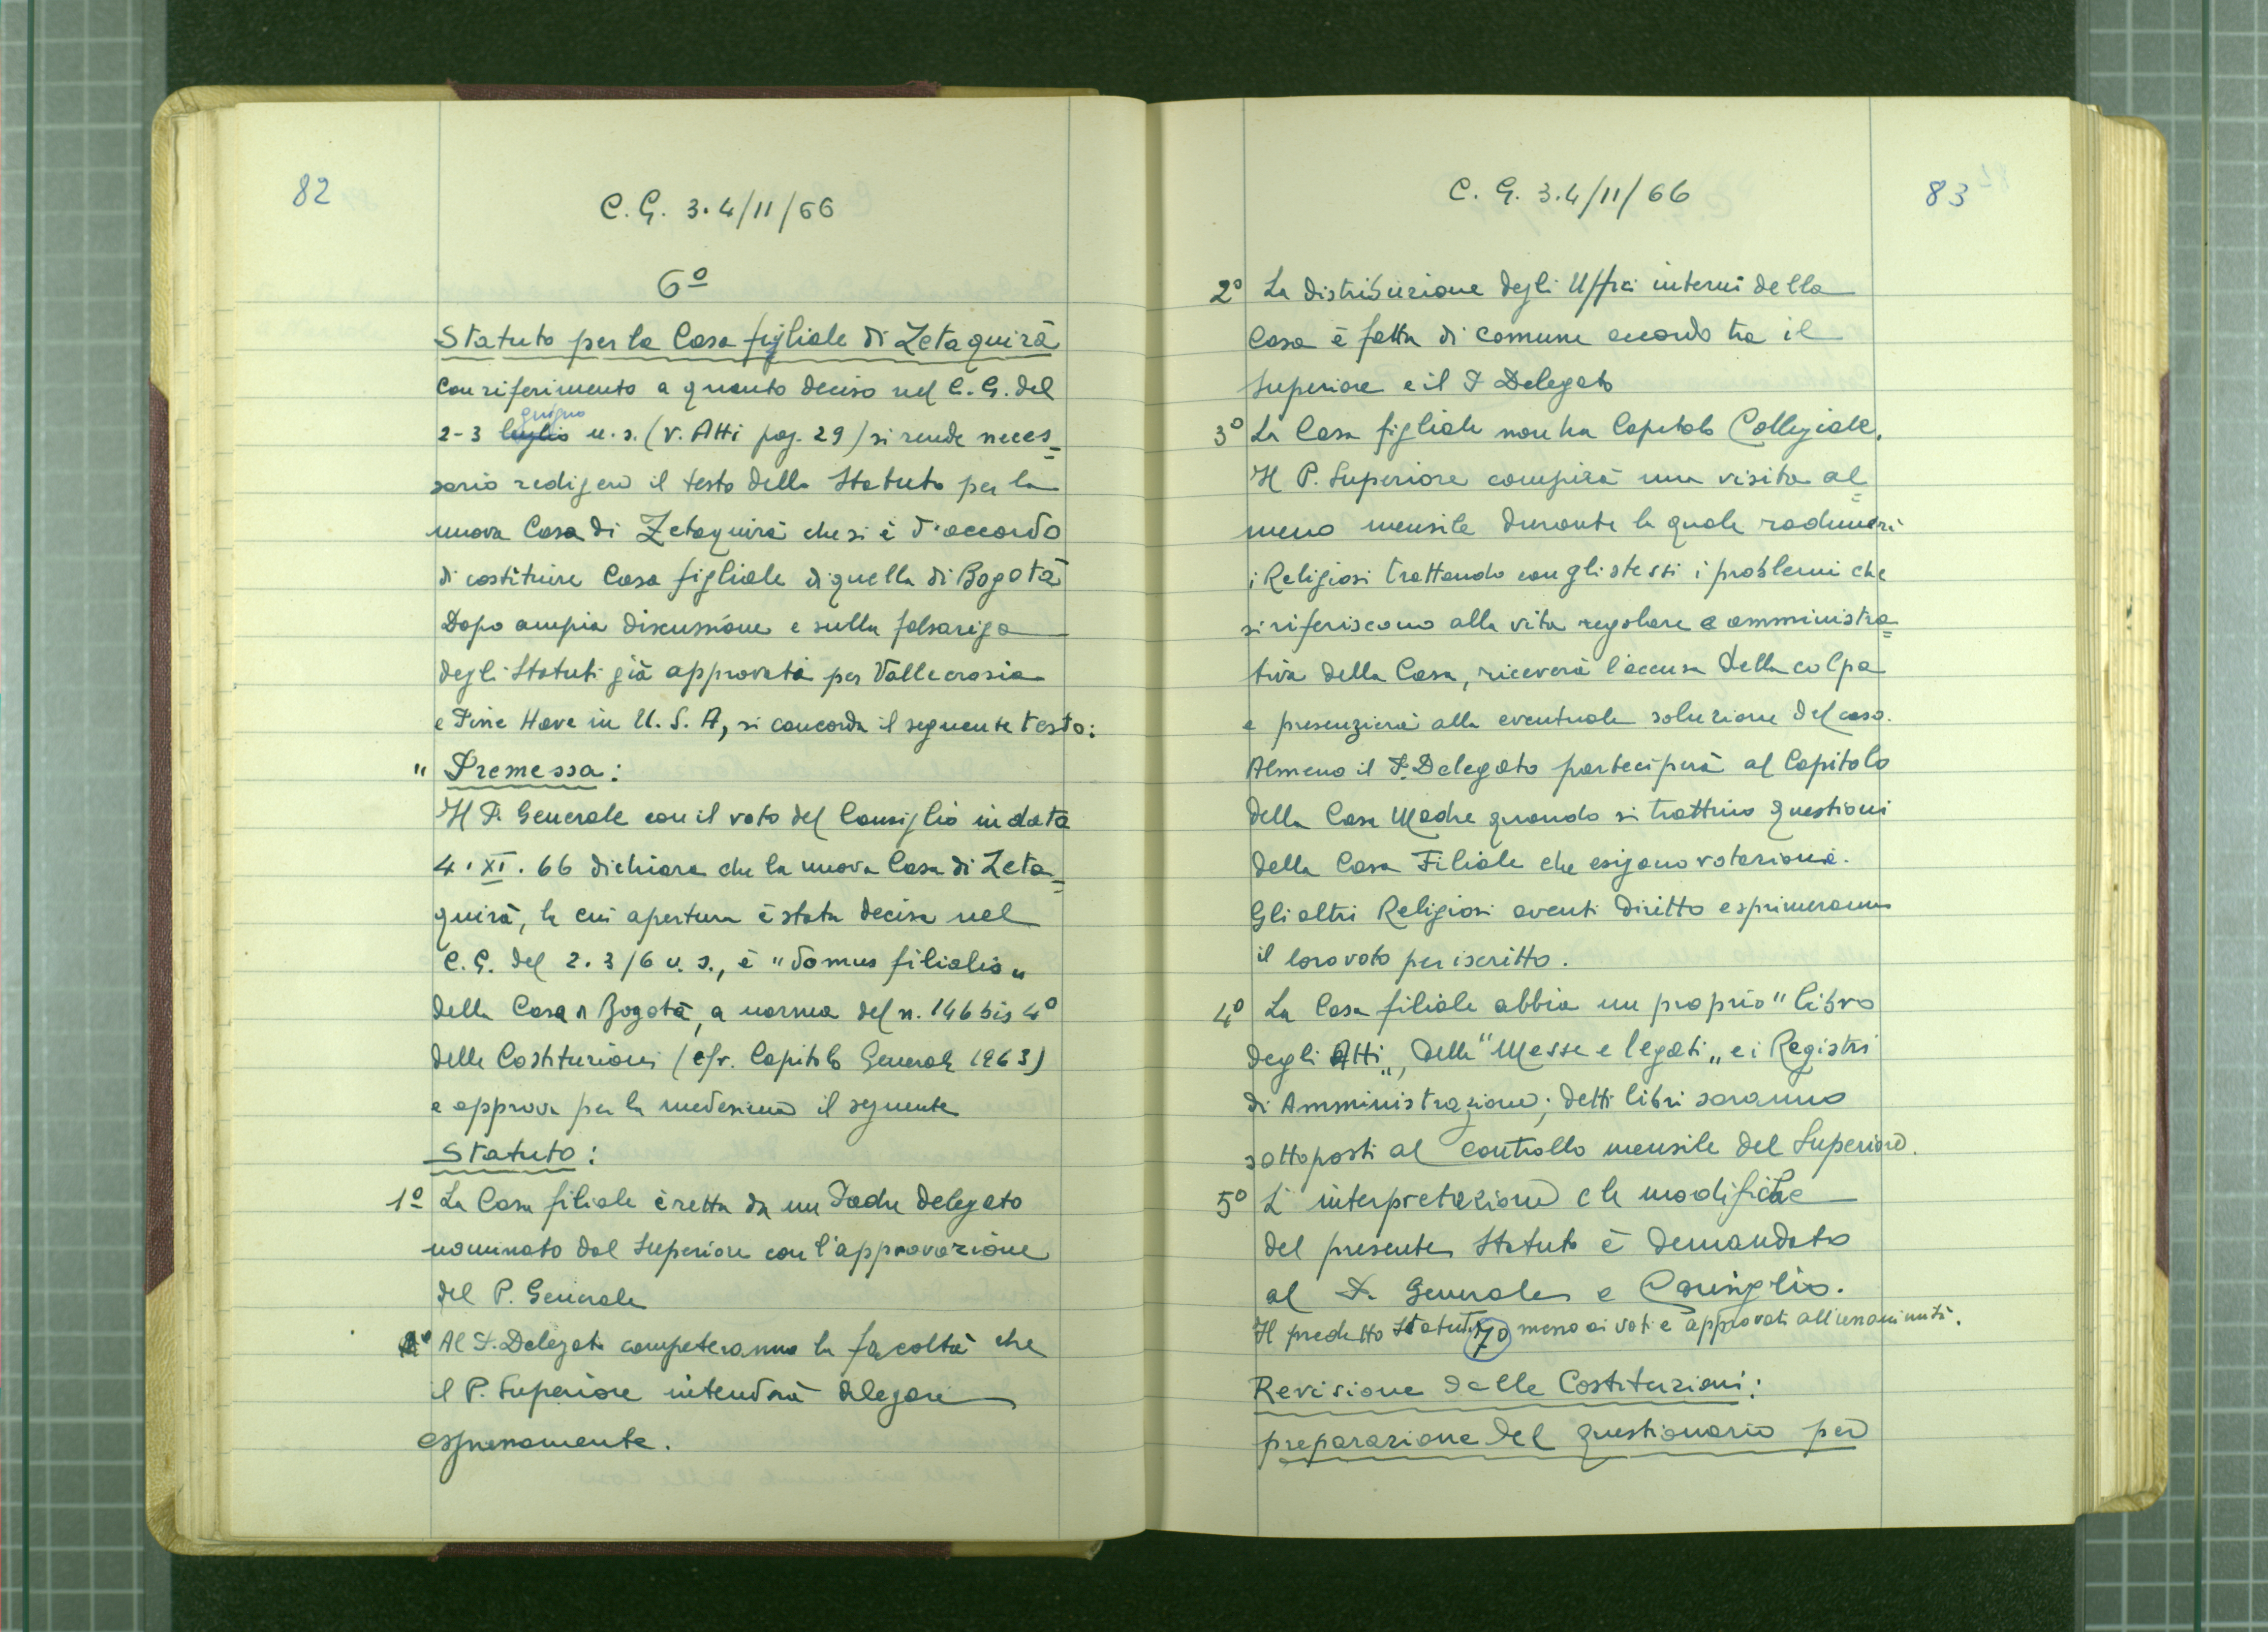 82
C. G. 3.4/11/66
6º
Statuto per la Casa figliale di Zetaquirà
con riferimento a quanto deciso nel C. G. del
giugno
2-3 luglio u. s. (v. Atti pag. 29) si rende neces=
sario redigere il testo dello Statuto per la
nuova Casa di Zetaquirà che si è d'accordo
di costituire Casa figliale di quella di Bogotà
Dopo ampia discussione e sulla falsariga
degli Statuti già approvati per Vallecrosia
e Pine Have in U. S. A, si concorda il seguente testo:
" Premessa:
Il P. Generale con il voto del Consiglio in data
4. XI. 66 dichiara che la nuova Casa di Zeta=
quirà, la cui apertura è stata decisa nel
C. G. del 2. 3/6 u. s., è "domus filialis"
della Casa Bogotà, a norma del n. 146 bis 4º
delle Costituzioni (cfr. Capitolo Generale 1963)
e approva per la medesima il seguente
Statuto:
1º La Casa filiale è retta da un Padre delegato
nominato dal Superiore con l'approvazione
del P. Generale
Al P. Delegato competeranno le facoltà che
il P. Superiore intenderà delegare
espressamente.
C. G. 3.4/11/66
83
2º La distribuzione degli Uffici interni della
Casa è fatta di comune accordo tra il
Superiore e il P Delegato
3º La Casa figliale non ha Capitolo Collegiale.
Il P. Superiore compirà una visita al=
meno mensile durante la quale radunerà
i Religiosi trattando con gli stessi i problemi che
si riferiscono alla vita regolare e amministra=
tiva della Casa, riceverà l'accusa della colpa
e presenzierà alla eventuale soluzione del caso.
Almeno il P. Delegato parteciperà al Capitolo
della Casa Madre quando si trattino questioni
della Casa Filiale che esigano votazione.
Gli altri Religiosi aventi diritto esprimeranno
il loro voto per iscritto.
4º La Casa filiale abbia un proprio "libro
degli Atti", delle "Messe e legati" e i Registri
di Amministrazione; detti libri saranno
sottoposti al controllo mensile del Superiore.
5º L'interpretazione e le modifiche
del presente Statuto è demandata
al P. Generale e Consiglio.
Il predetto Statuto messo ai voti è approvato all'unanimità.
7º
Revisione delle Costituzioni:
preparazione del questionario per